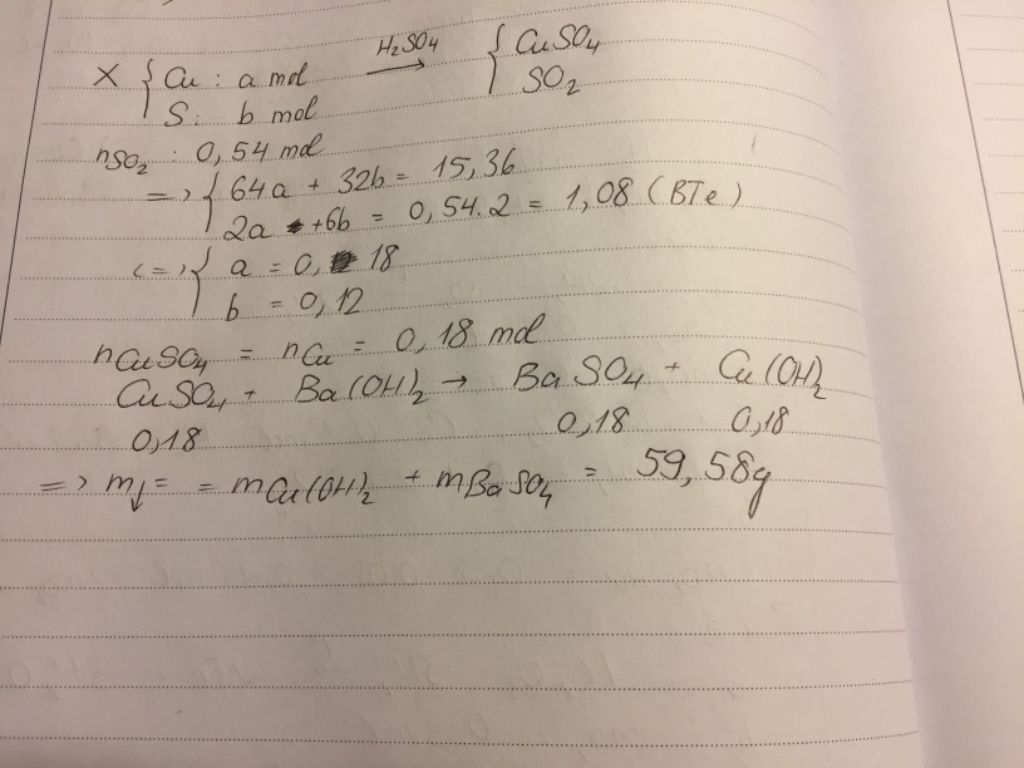 X { Cu : a mol →(H₂SO₄) { CuSO₄
S : b mol SO₂
nSO₂ : 0,54 mol
=> { 64a + 32b = 15,36
2a +6b = 0,54.2 = 1,08 (BTe)
<=> { a = 0,18
b = 0,12
nCuSO₄ = nCu = 0,18 mol
CuSO₄ + Ba(OH)₂ → BaSO₄ + Cu(OH)₂
0,18 0,18 0,18
=> m↓ = = mCu(OH)₂ + mBaSO₄ = 59,58g